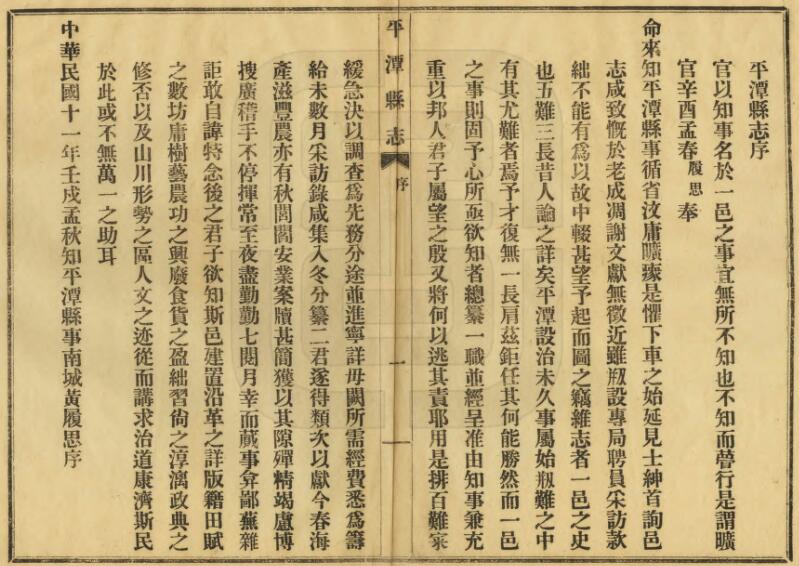 平潭縣志序
官以知事名於一邑之事宜無所不知也不知而瞢行是謂曠
官辛酉孟春履思奉
命來知平潭縣事循省汶庸曠瘝是懼下車之始延見士紳首詢邑
志咸致慨於老成凋謝文獻無徵近雖剏設專局聘員采訪款
絀不能有爲以故中輟甚望予起而圖之竊維志者一邑之史
也五難三長昔人論之詳矣平潭設治未久事屬始剏難之中
有其尤難者焉予才復無一長肩茲鉅任其何能勝然而一邑
之事則固予心所亟欲知者總纂一職並經呈准由知事兼充
重以邦人君子屬望之殷又將何以逃其責耶用是排百難寀
平潭縣志
序
一
緩急決以調查爲先務分途並進寧詳毋闕所需經費悉爲籌
給未數月采訪錄咸集入冬分纂二君遂得類次以獻今春海
產滋豐農亦有秋閭閻安業案牘甚簡獲以其隙殫精竭慮博
搜廣稽手不停揮常至夜盡勤勤七閱月幸而蕆事弇鄙蕪雜
詎敢自諱特念後之君子欲知斯邑建置沿革之詳版籍田賦
之數坊庸樹藝農功之興廢食貨之盈絀習尙之淳漓政典之
修否以及山川形勢之區人文之迹從而講求治道康濟斯民
於此或不無萬一之助耳
中華民國十一年壬戌孟秋知平潭縣事南城黃履思序